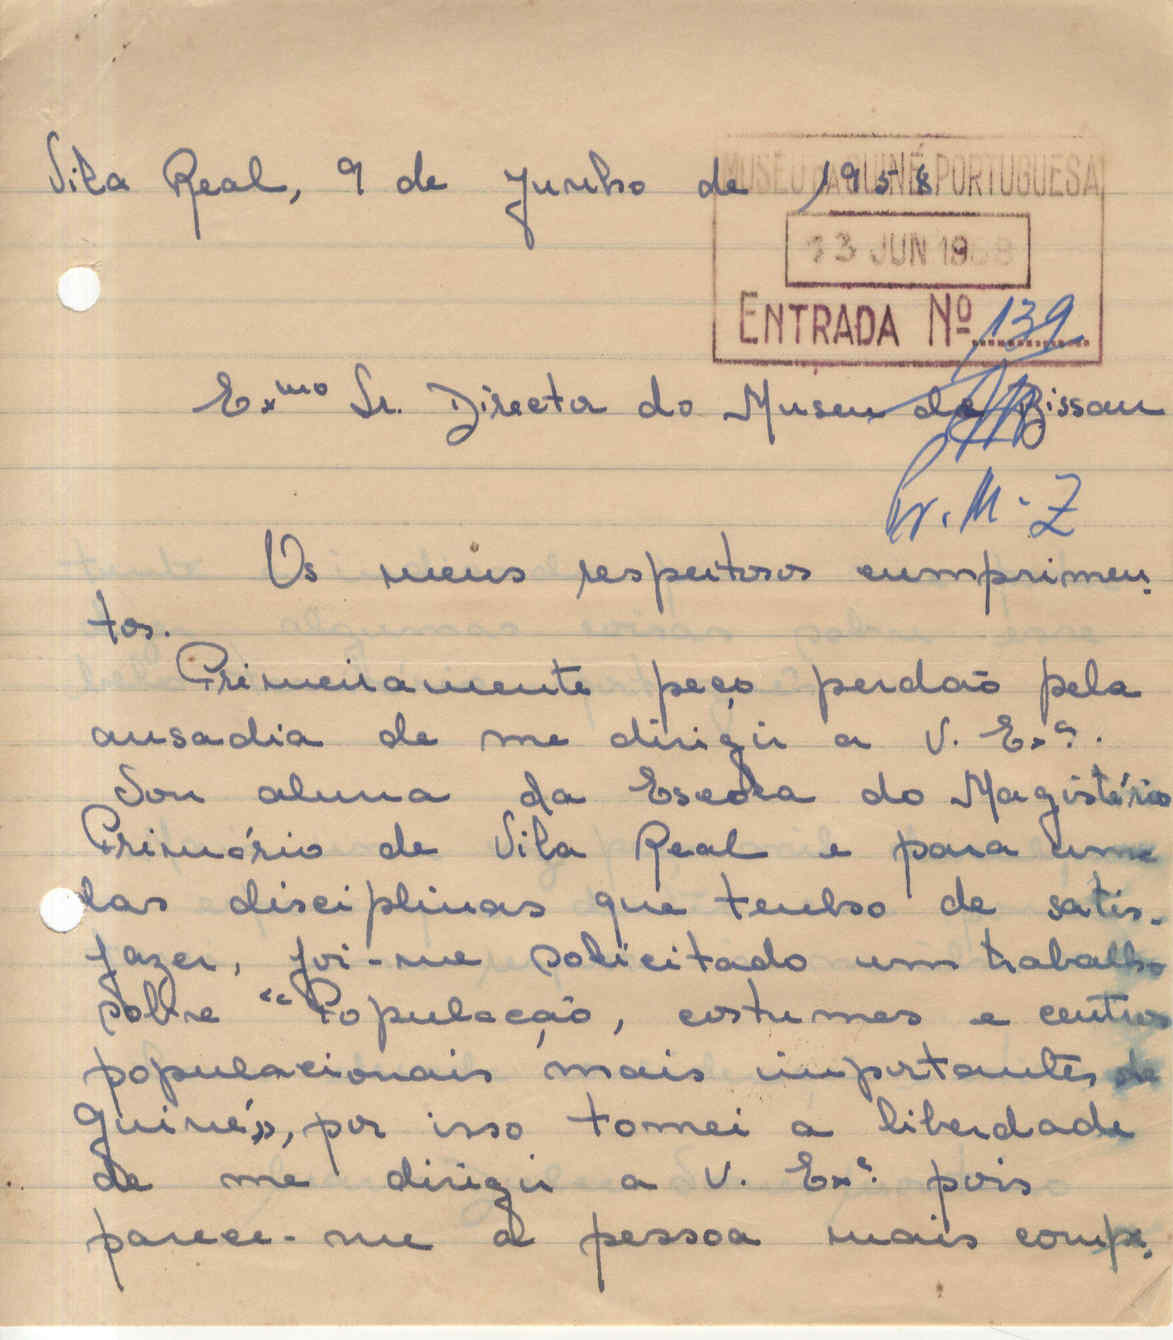 Vila Real, 9 de Junho de 1958
MUSEU DA GUINÉ PORTUGUESA
13 JUN 1958
ENTRADA Nº 139
Exmo Sr. Director do Museu de Bissau
M-Z
Os meus respeitosos cumprimen-
tos.
Primeiramente peço perdão pela
ausadia de me dirigir a V. Exª.
Sou aluna da Escola do Magistério
Primário de Vila Real e para uma
das disciplinas que tenho de satis-
fazer, foi-me solicitado um trabalho
sobre "População, costumes e centros
populacionais mais importantes da
Guiné», por isso tomei a liberdade
de me dirigir a V. Exª. pois
parece-me a pessoa mais compe-